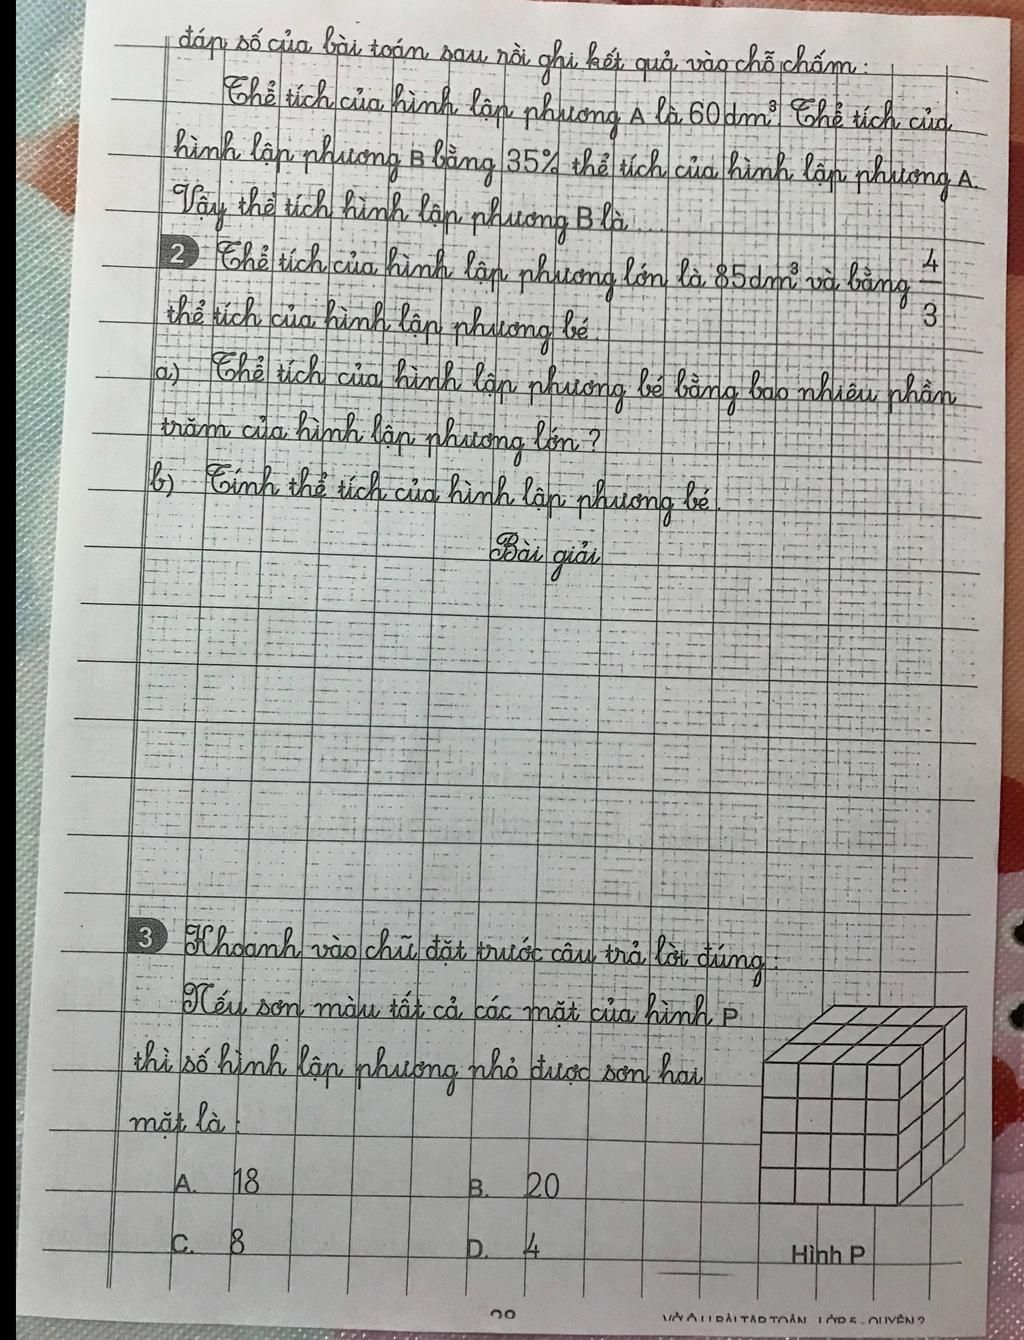 đáp số của bài toán sau rồi ghi kết quả vào chỗ chấm:
Thể tích của hình lập phương A là 60dm³. Thể tích của
hình lập phương B bằng 35% thể tích của hình lập phương A.
Vậy thể tích hình lập phương B là ....
2 Thể tích của hình lập phương lớn là 85dm³ và bằng 4/3
thể tích của hình lập phương bé.
a) Thể tích của hình lập phương bé bằng bao nhiêu phần
trăm của hình lập phương lớn?
b) Tính thể tích của hình lập phương bé.
Bài giải
3 Khoanh vào chữ đặt trước câu trả lời đúng:
Nếu sơn màu tất cả các mặt của hình P
thì số hình lập phương nhỏ được sơn hai
mặt là:
A. 18 B. 20
C. 8 D. 4
Hình P
BÀI TẬP TOÁN LỚP 5 - QUYỂN 2